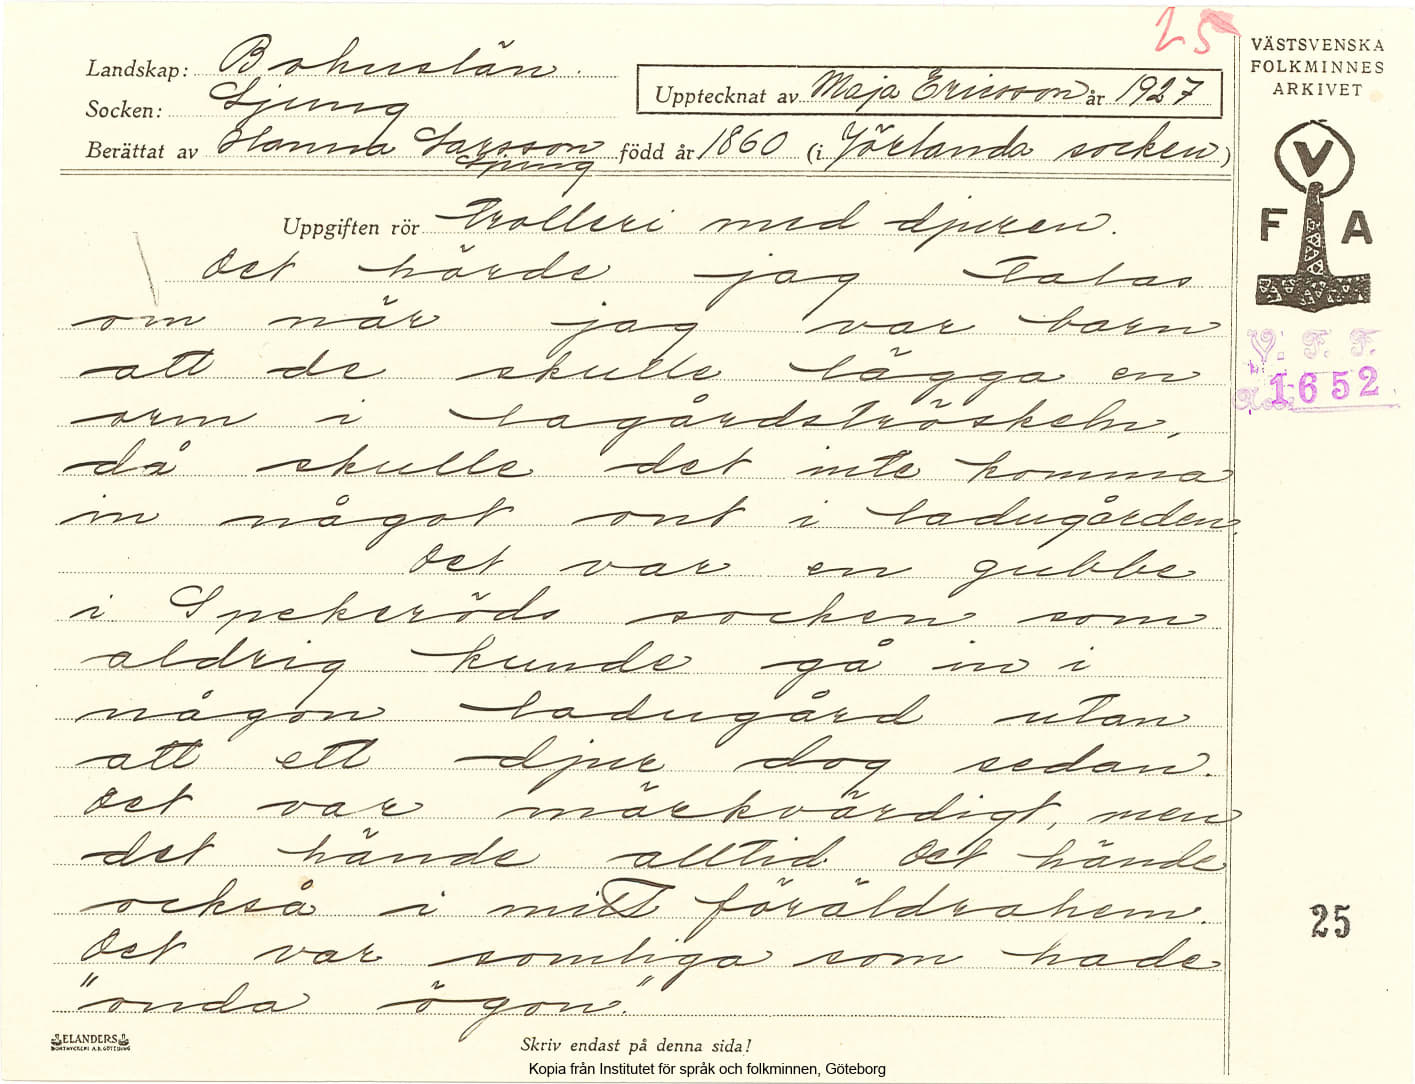 25
VÄSTSVENSKA
FOLKMINNES
ARKIVET
Landskap: Bohuslän.
Socken: Ljung
Upptecknat av Maja Ericsson år 1927
Berättat av Hanna Larsson född år 1860 (i Jörlanda socken)
Ljung
V
F A
Uppgiften rör Trolleri med djuren.
Det hörde jag talas
om när jag var barn
att de skulle lägga en
orm i lagårdströskeln,
då skulle det inte komma
in något ont i ladugården.
Det var en gubbe
i Spekeröds socken som
aldrig kunde gå in i
någon ladugård utan
att ett djur dog sedan.
Det var märkvärdigt, men
det hände alltid. Det hände
också i mitt föräldrahem.
Det var somliga som hade
"onda ögon."
V. F. F.
1652
25
ELANDERS
BOKTRYCKERI A.B. GÖTEBORG
Skriv endast på denna sida!
Kopia från Institutet för språk och folkminnen, Göteborg